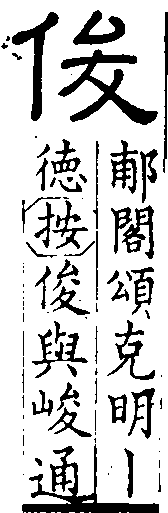 俊
郙閣頌克明丨
德按俊與峻通